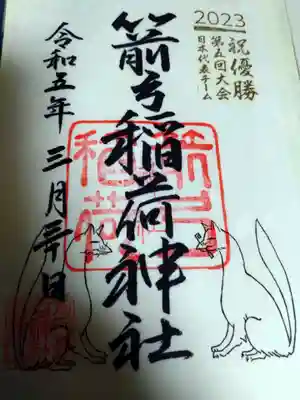 2023
祝優勝
第五回大会
日本代表チーム
箭弓稲荷神社
令和五年三月三十日
箭弓
稲荷